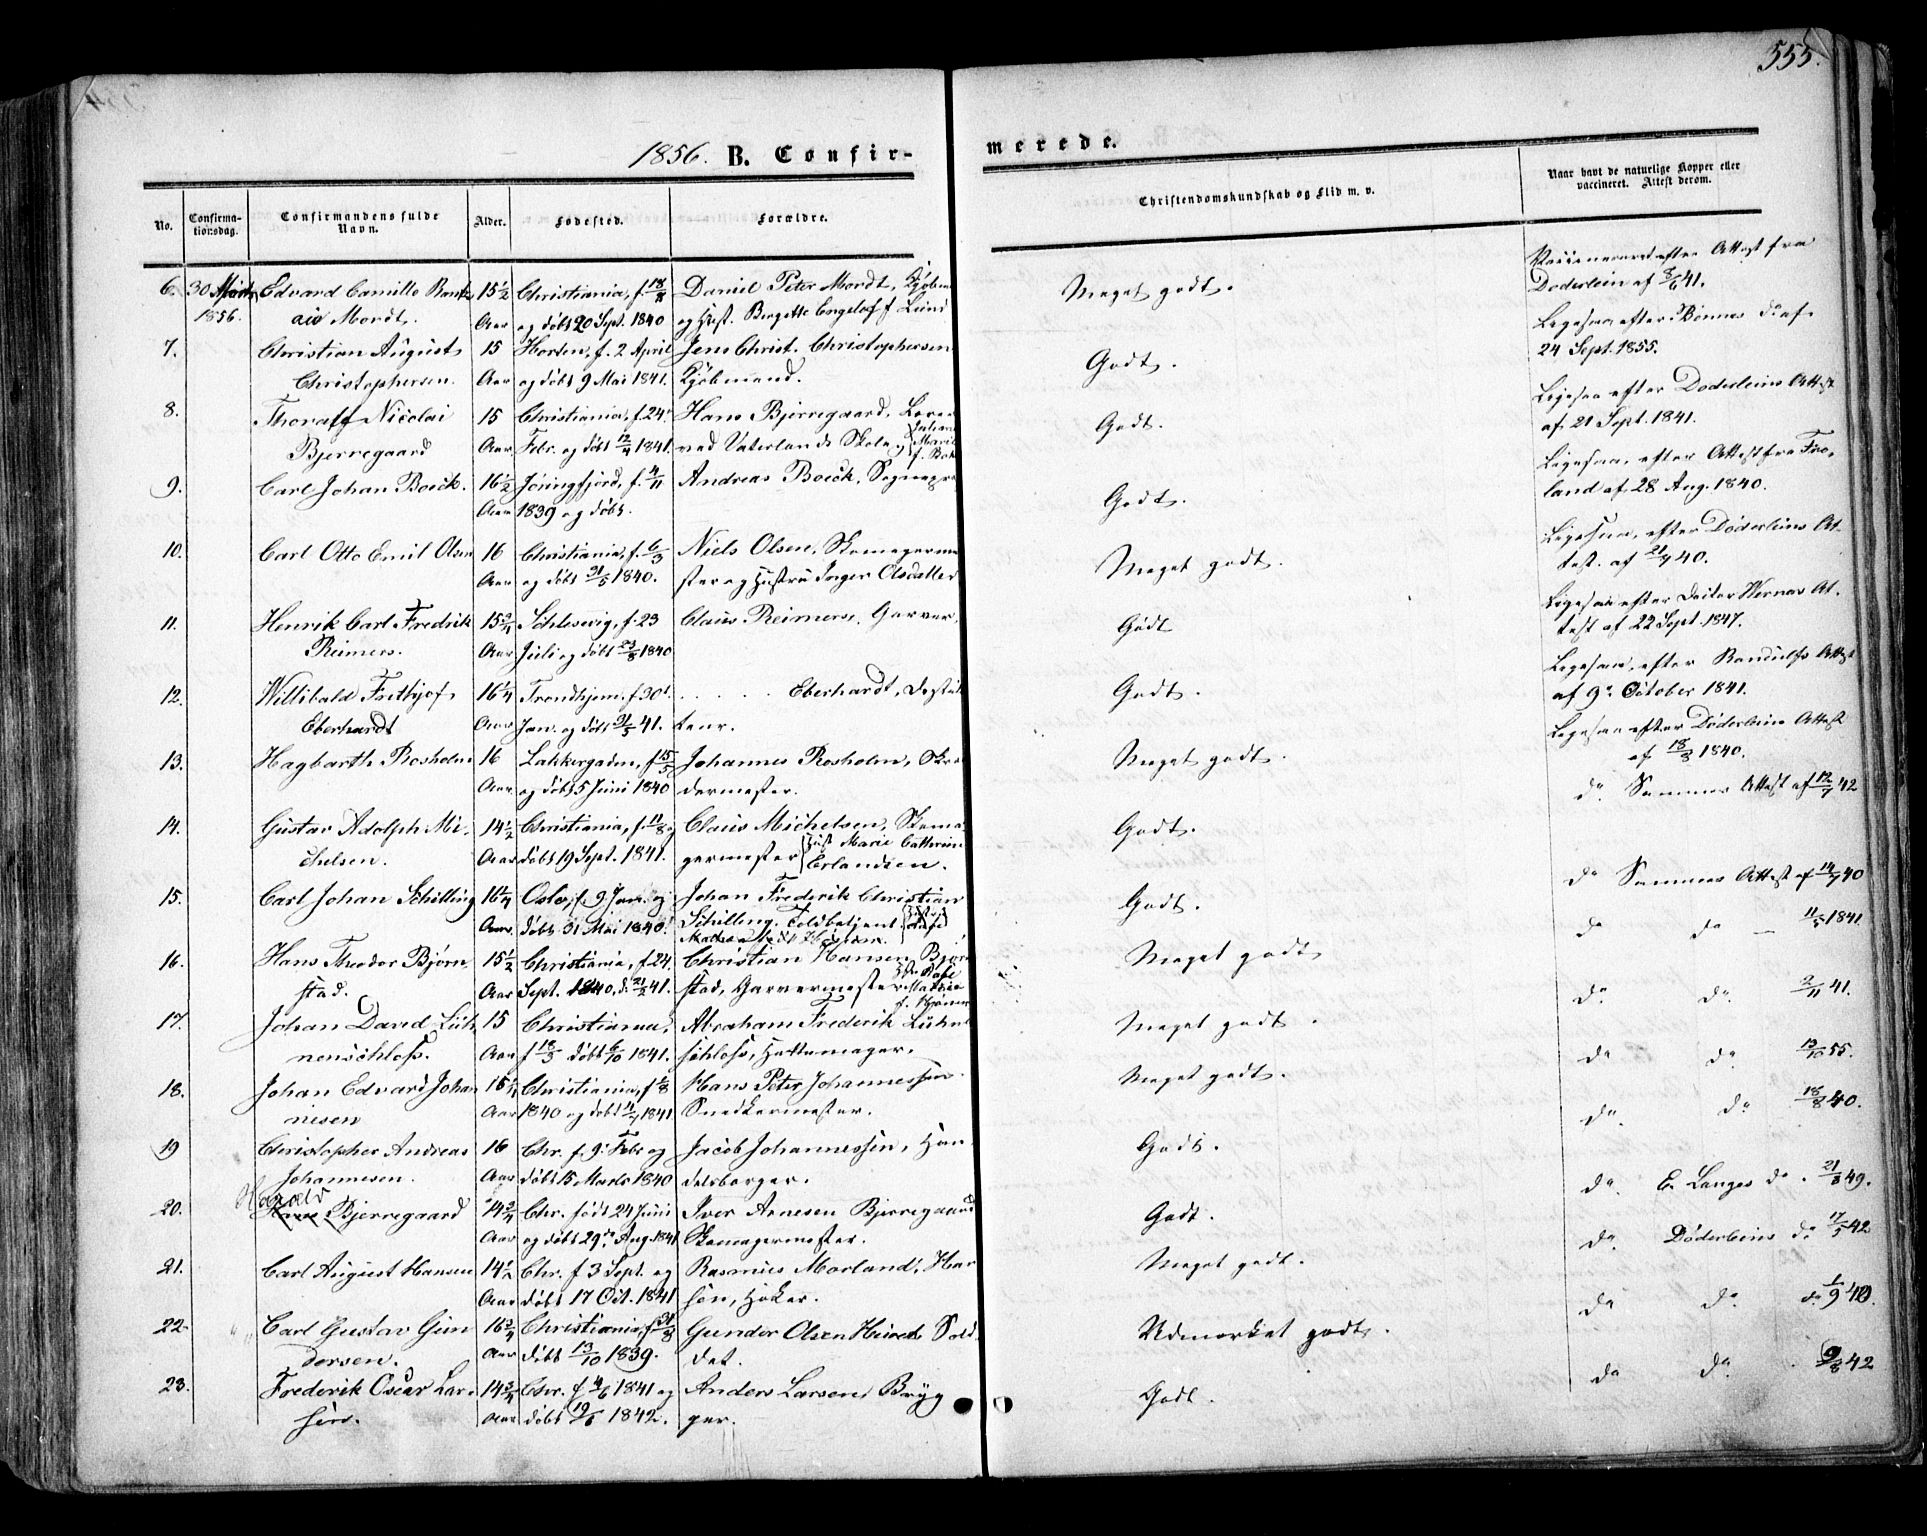 555.
1856. B. Confir-
merede.
No.
Confirma-
tionsdag.
Confirmandens fulde
Navn.
Alder.
Fødested.
Forældre.
Christendomskundskab og Flid m. v.
Naar havt de naturlige Kopper eller
vaccineret. Attest derom.
6. 30 Marts Edvard Camillo 15½ Christiania, f. 18/8 Daniel Peter Mordt, Kjøbm Meget godt. Vaccineret efter Attest fra
1856. Mordt. Aar og døbt 20 Sept. 1840 og Hust. Birgitte Engeloff f. Lund Døderlein af 8/6 41.
7. Christian August 15 Horten, f. 2 April Jens Christ. Christophersen Godt. Ligesaa efter Bønnes do af
Christophersen. Aar og døbt 9 Mai 1841. Kjøbmand. 24 Sept. 1855.
8. Thoralf Nicolai 15 Christiania, f. 24 Hans Bjerregaard, Lærer Godt. Ligesaa efter Døderleins Attest
Bjerregaard Aar Febr. og døbt 12/4 1841. ved Vaterlands Skole af 21 Sept. 1841.
9. Carl Johan Boeck. 16½ f. 4/11 Andreas Boeck, Sognepr Godt. Ligesaa, efter Attest fra Fro-
Aar 1839 og døbt. land af 28 Aug. 1840.
10. Carl Otto Emil Olsen 16 Christiania, f. 6/3 Niels Olsen, Skomagerme Meget godt. Ligesaa, efter Døderleins At-
Aar og døbt 31/5 1840. ster og Hustru Inger Olsdatter test. af 21/7 40.
11. Henrik Carl Fredrik 15¾ Schleswig, f. 23 Claus Reimers, Garver. Godt Ligesaa efter Doctor Wernas At-
Reimers. Aar Juli og døbt 23/8 1840 test af 22 Sept. 1847.
12. Willibald Frithjof 16¼ Trondhjem, f. 30 Eberhardt, Destila Godt. Ligesaa efter Attest
Eberhardt Aar Jan. og døbt 31/5 41. teur. af 9. October 1841.
13. Hagbarth Rosholm 16 Lakkergaden, f 15/5 Johannes Rosholm, Skræ Meget godt. Ligesaa efter Døderleins Attest
Aar og døbt 5 Juni 1840 dermester. af 18/8 1840.
14. Gustav Adolph Mi- 14½ Christiania, f. 11/8 og Claus Michelsen, Skoma- Godt. do. Sammes Attest af 12/7 42
chelsen. Aar døbt 19 Sept. 1841. germester Hust. Marie Cathrine
Erlandsen.
15. Carl Johan Schilling 16¼ Oslo, f. 9 Jan. og Johan Frederik Christian Godt. do Sammes Attest af 14/7 40
Aar døbt 31 Mai 1840. Schilling, Toldbetjent
16. Hans Theodor Bjørn 15½ Christiania, f. 24. Christian Hansen Bjørn Meget godt do do 11/5 1841.
stad. Aar Sept. 1840, d. 21/2 41. stad, Garvermester
17. Johan David Lüh- 15 Christiania, Abraham Frederik Lühnen Meget godt. do. do. 2/11 41.
nenschloss. Aar f 18/3 døbt 6/10 1841. schloss, Hattemager.
18. Johan Edvard Johan 15½ Christiania, f 1/8 Hans Peter Johannessen Meget godt. do do. 13/10 55.
nesen Aar 1840 og døbt 11/7 1841 Snedkermester.
19 Christopher Andreas 16 Chr. f. 9 Febr og Jacob Johannessen, Han Godt. do. do. 18/8 40.
Johannesen. Aar døbt 15 Marts 1840 delsborger.
20. Harald Bjerregaard 14¾ Chr. født 24 Juni Iver Arnesen Bjerregaard Godt. do. E. Langes do. 21/8 49.
Aar og døbt 29 Aug. 1841 Skomagermester.
21. Carl August Hansen 14½ Chr. f 3 Sept. og Rasmus Morland, Han Meget godt. do. Døderleins do 17/5 42.
Aar døbt 17 Oct. 1841 sen, Høker.
22. Carl Gustav Gun 16¾ Christiania, f 31/8 Gunder Olsen Sold. Udmærket godt. do do. do. 1/9 40.
dersen. Aar døbt 13/10 1839. dat.
23. Frederik Oscar Lar- 14¾ Chr. f 4/6 1841 og Anders Larsen, Bryg Godt. do do. 9/8 42
sen. Aar døbt 19/6 1842. ger.